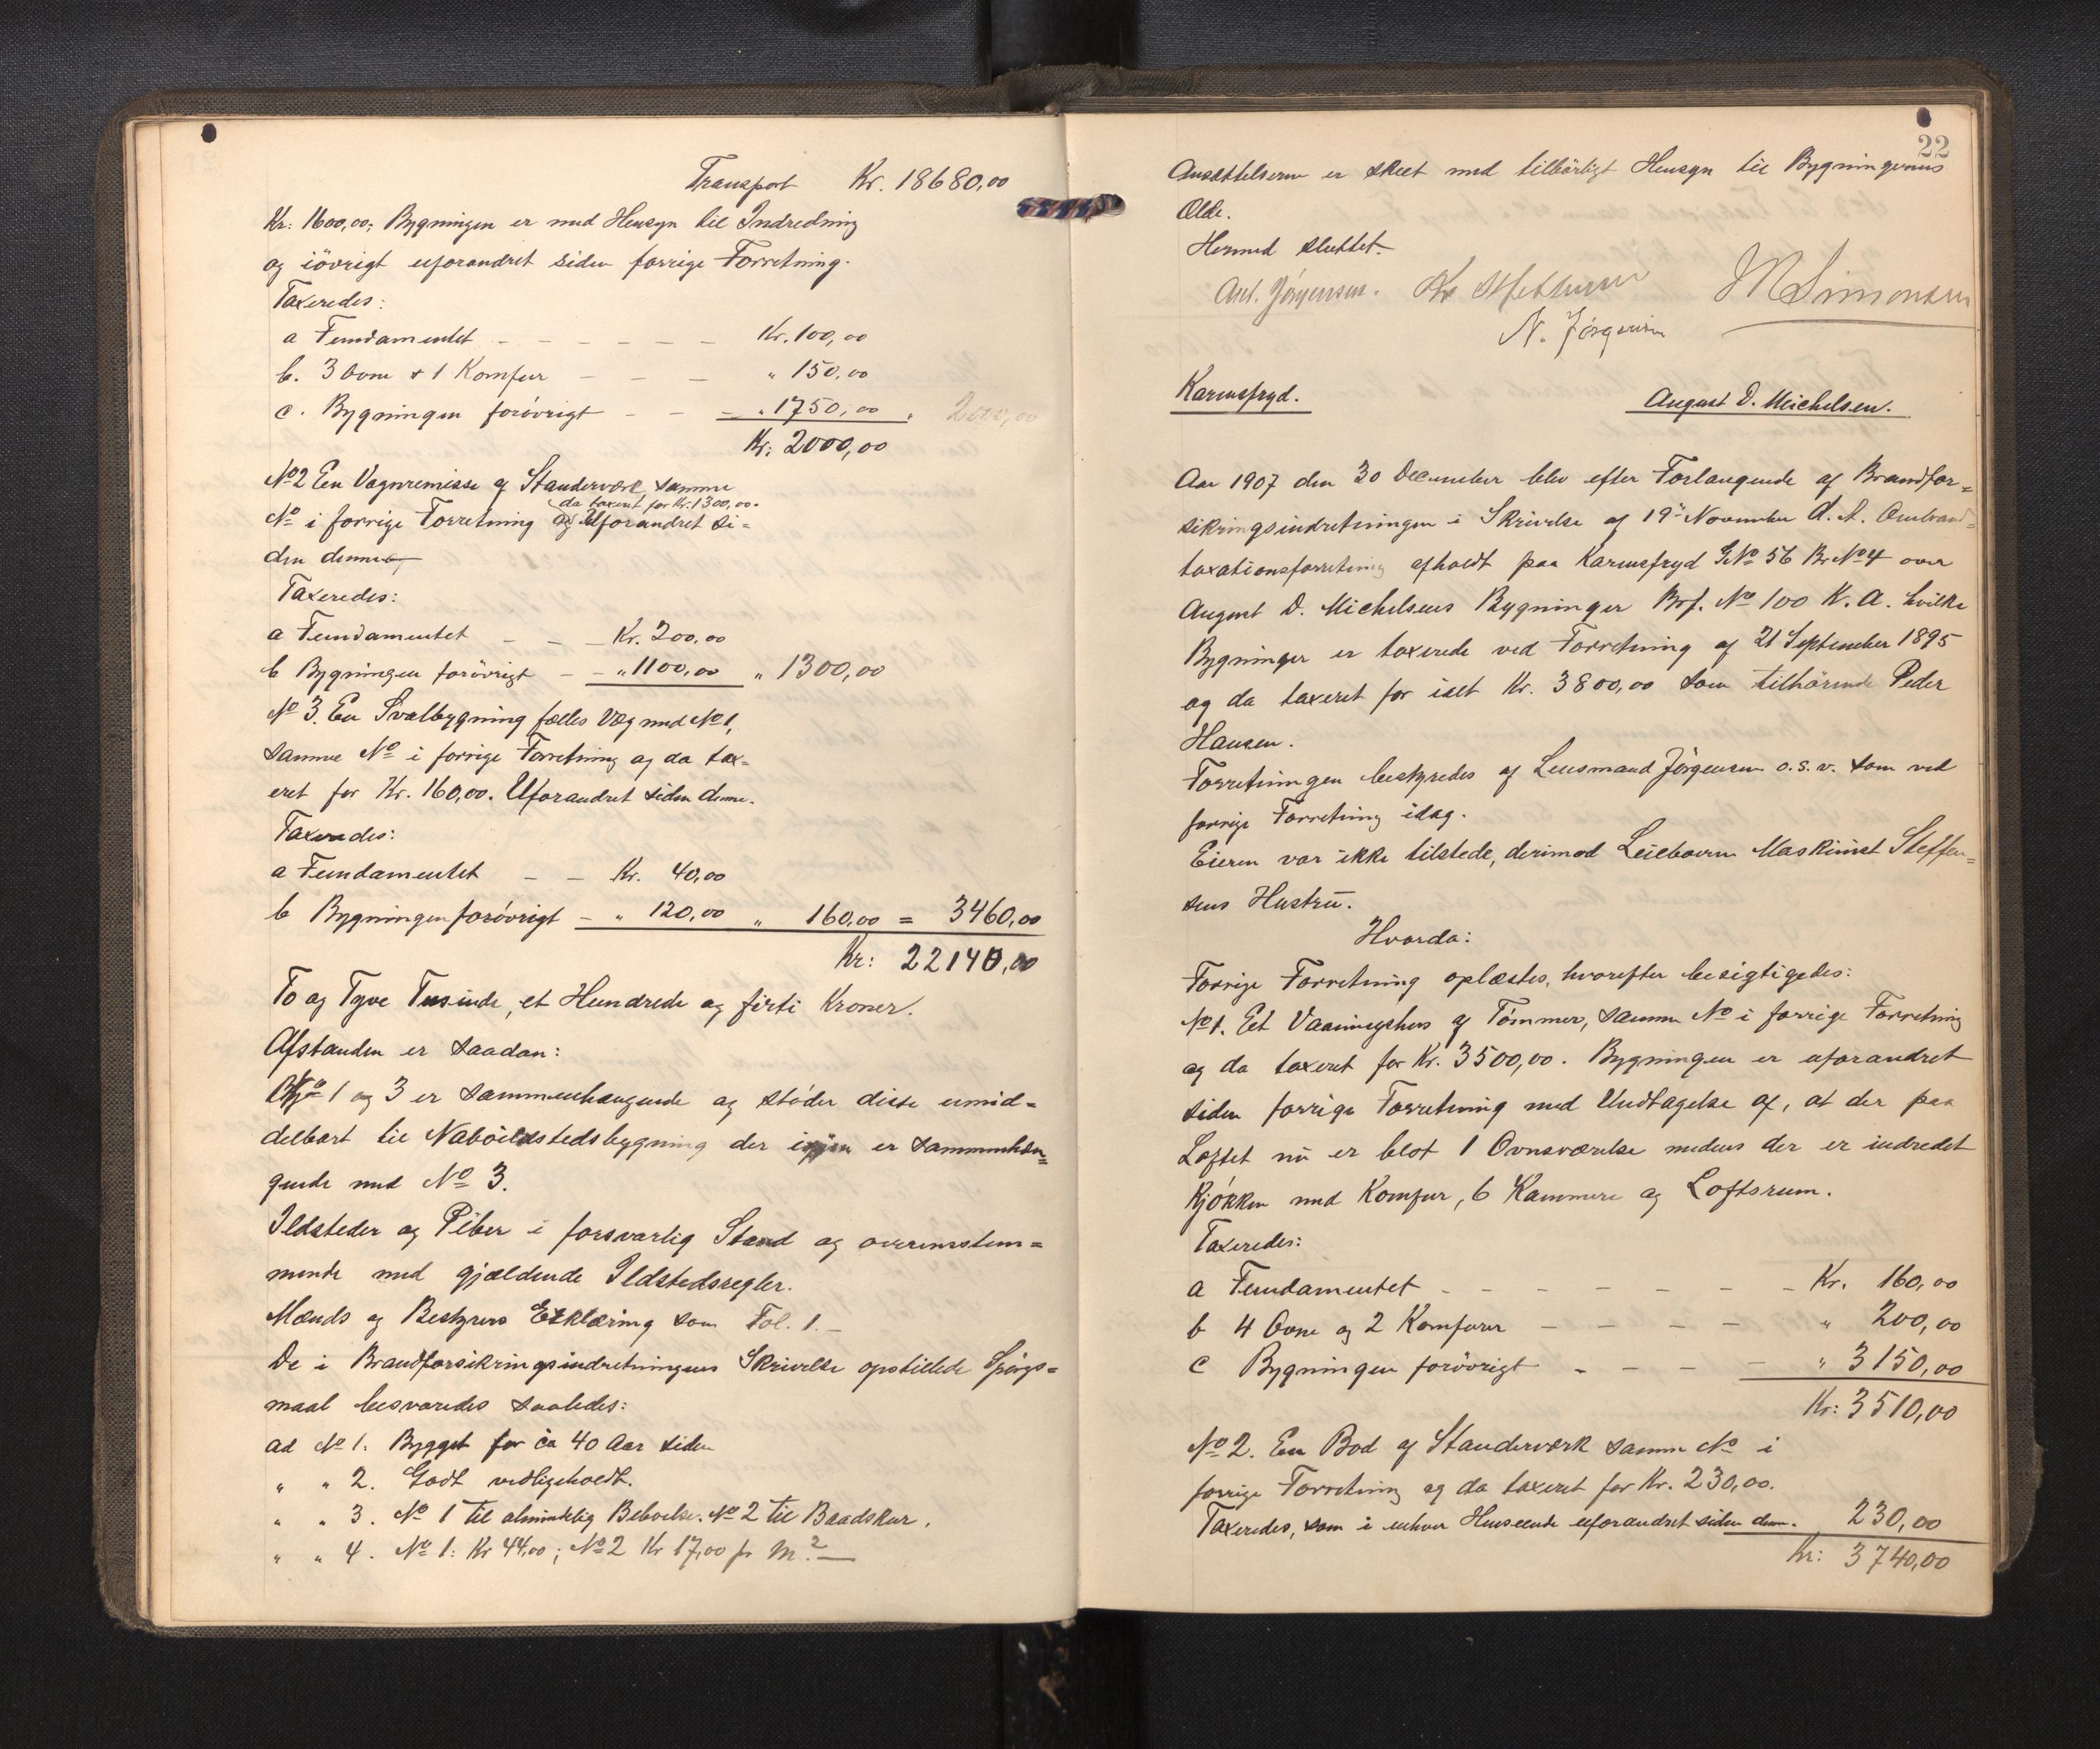 Transport Kr. 18680,00
Kr: 1600,00; Bygningen er med Hensyn til Indredning
og iövrigt uforandret siden forrige Forretning.
Taxeredes:
a Fundamentet - - - - - - Kr. 100,00
b. 3 Ovne + 1 Komfur - - - " 150,00
c. Bygningen forövrigt - - - " 1750,00 " 2000,00
Kr: 2000,00
No 2 En Vognremisse af Standerværk, samme
da taxeret for Kr. 1300,00.
No i forrige Forretning og Uforandret si=
den denne
Taxeredes:
a Fundamentet - - - Kr. 200,00
b Bygningen forövrigt - - " 1100,00 " 1300,00
No 3. En Svalbygning fælles Væg med No 1,
samme No i forrige Forretning og da tax=
eret for Kr. 160,00. Uforandret siden denne.
Taxeredes:
a Fundamentet - - Kr. 40,00
b Bygningen forövrigt - " 120,00 " 160,00 = 3460,00
Kr: 22140,00
To og Tyve Tusinde, et Hundrede og firti Kroner.
Afstanden er saadan:
No 1 og 3 er sammenhængende og stöder disse umid=
delbart til Naboildstedsbygning der igjen er sammenhæn=
gende med No 3.
Ildsteder og Piber i forsvarlig Stand og overensstem=
mende med gjældende Ildstedsregler.
Mænds og Bestyrers Erklæring som Fol. 1. -
De i Brandforsikringsindretningens Skrivelse opstillede Spörgs=
maal besvaredes saaledes:
ad No 1. Bygget for ca 40 Aar siden
" " 2. Godt vedligeholdt.
" " 3. No 1 til almindelig Beboelse. No 2 til Baadskur.
" " 4. No 1: Kr 44,00; No 2 Kr 17,00 pr m.2 -
22
Ansættelserne er skeet med tilbörligt Hensyn til Bygningernes
Ælde.
Hermed sluttet.
Ant. Jörgensen. M Simonsen
N. Jörgensen
Karmsfryd. August D. Michelsen.
Aar 1907 den 30 December blev efter Forlangende af Brandfor=
sikringsindretningen i Skrivelse af 19de November d. A. Ombrand=
taxationsforretning afholdt paa Karmsfryd G.No 56 Br.No 4 over
August D. Michelsens Bygninger Brf. No 100 K. A. hvilke
Bygninger er taxerede ved Forretning af 21 September 1895
og da taxeret for ialt Kr. 3800,00 som tilhörende Peder
Hansen.
Forretningen bestyredes af Lensmand Jörgensen o.s.v. som ved
forrige Forretning idag.
Eieren var ikke tilstede, derimod Leieboeren Maskinist Steffen=
sens Hustru.
Hvorda:
Forrige Forretning oplæstes, hvorefter besigtigedes:
No 1. Eet Vaaningshus af Tömmer, samme No i forrige Forretning
og da taxeret for Kr. 3500,00. Bygningen er uforandret
siden forrige Forretning med Undtagelse af, at der paa
Loftet nu er blot 1 Ovnsværelse medens der er indredet
Kjökken med Komfur, 6 Kammere og Loftsrum.
Taxeredes:
a Fundamentet - - - - - - - Kr. 160,00
b 4 Ovne og 2 Komfurer - - - - " 200,00
c Bygningen forövrigt - - - - " 3150,00
Kr: 3510,00
No 2. En Bod af Standerværk samme No i
forrige Forretning og da taxeret for Kr. 230,00.
Taxeredes, som i enhver Henseende uforandret siden denne. 230,00
Kr: 3740,00